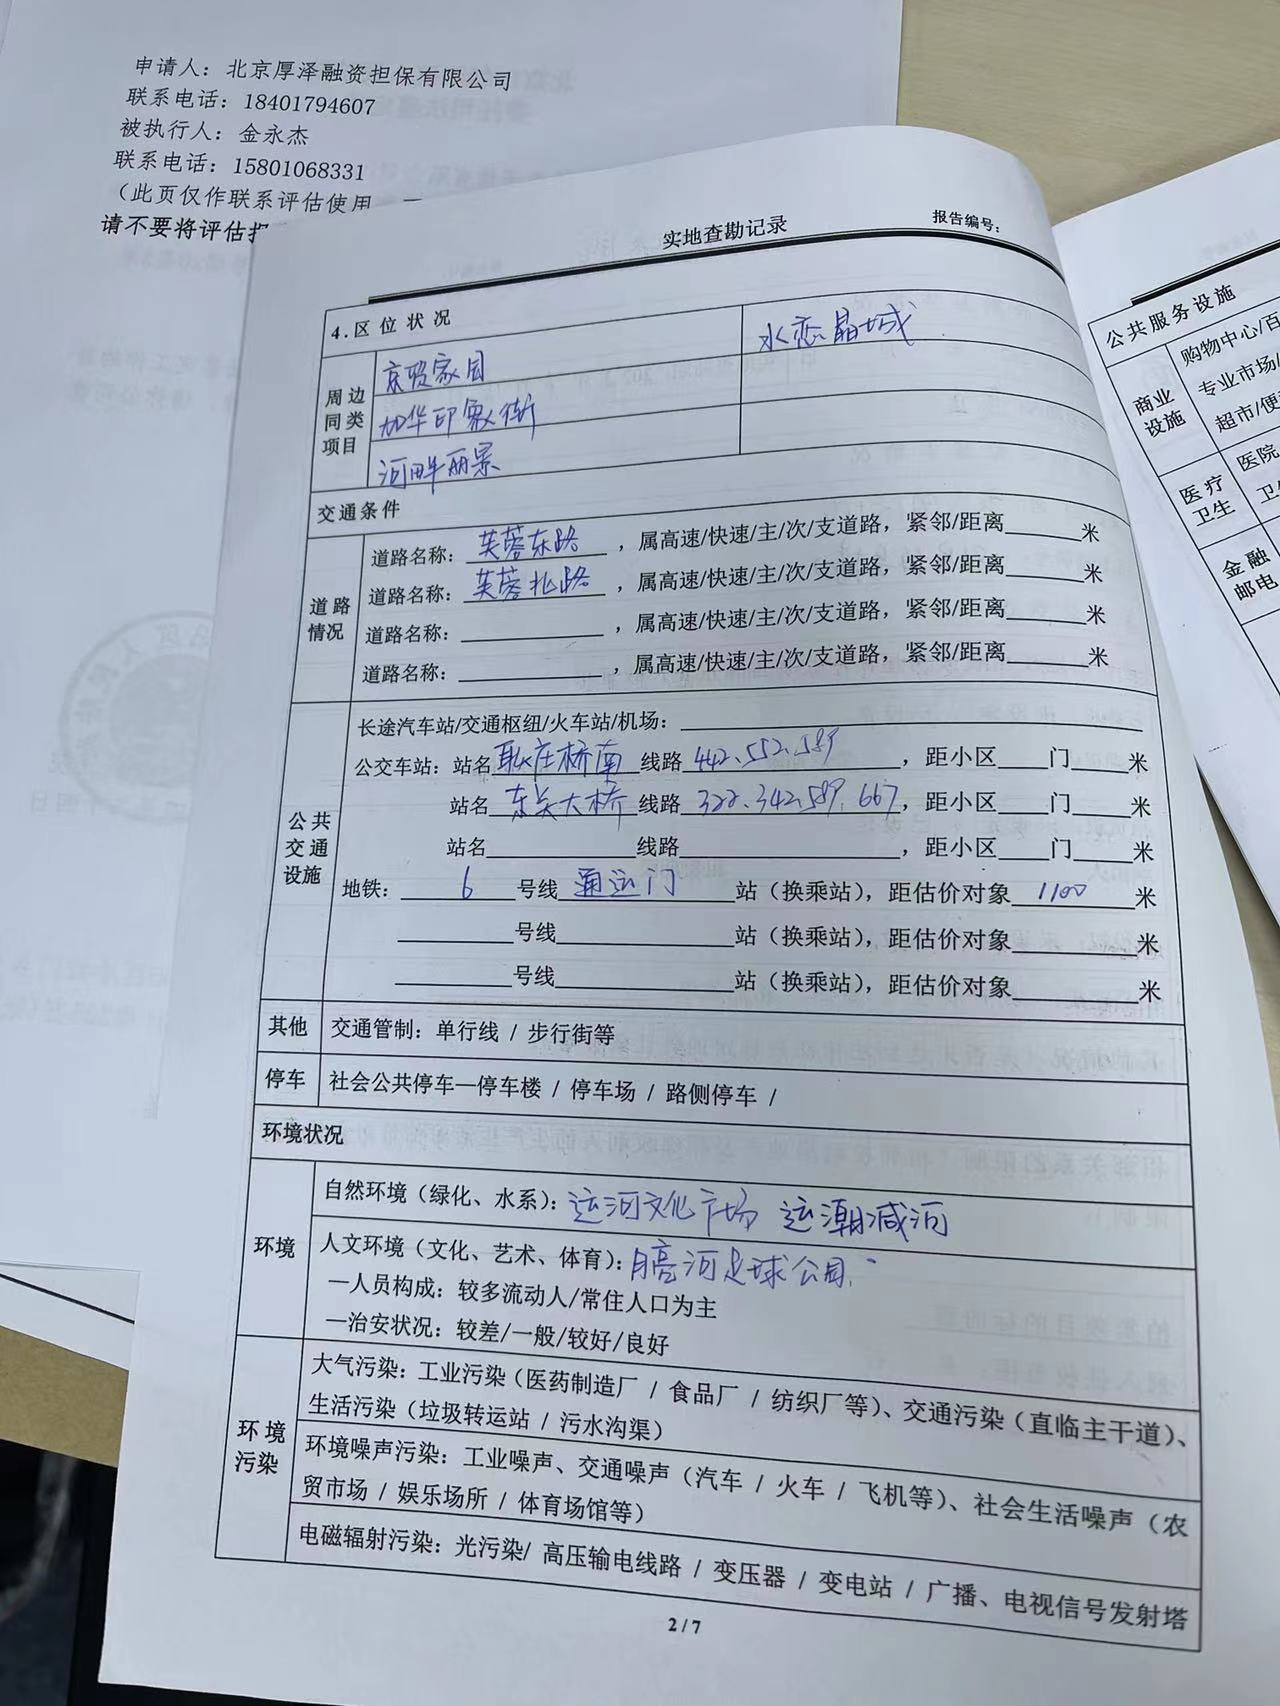 申请人：北京厚泽融资担保有限公司
联系电话：18401794607
被执行人：金永杰
联系电话：15801068331
（此页仅作联系评估使用
请不要将评估报
实地查勘记录
报告编号：
4.区位状况
周边同类项目
京贸家园
水恋晶城
加华印象街
河畔丽景
交通条件
道路情况
道路名称：芙蓉东路，属高速/快速/主/次/支道路，紧邻/距离______米
道路名称：芙蓉北路，属高速/快速/主/次/支道路，紧邻/距离______米
道路名称：______，属高速/快速/主/次/支道路，紧邻/距离______米
道路名称：______，属高速/快速/主/次/支道路，紧邻/距离______米
公共交通设施
长途汽车站/交通枢纽/火车站/机场：______
公交车站：站名耿庄桥南线路442.552.589，距小区____门____米
站名东关大桥线路322.342.589.667，距小区____门____米
站名______线路______，距小区____门____米
地铁：6号线通运门站（换乘站），距估价对象1100米
______号线______站（换乘站），距估价对象______米
______号线______站（换乘站），距估价对象______米
其他 交通管制：单行线 / 步行街等
停车 社会公共停车—停车楼 / 停车场 / 路侧停车 /
环境状况
环境
自然环境（绿化、水系）：运河文化广场 运潮减河
人文环境（文化、艺术、体育）：月亮河足球公园
—人员构成：较多流动人/常住人口为主
—治安状况：较差/一般/较好/良好
环境污染
大气污染：工业污染（医药制造厂 / 食品厂 / 纺织厂等）、交通污染（直临主干道）、
生活污染（垃圾转运站 / 污水沟渠）
环境噪声污染：工业噪声、交通噪声（汽车 / 火车 / 飞机等）、社会生活噪声（农
贸市场 / 娱乐场所 / 体育场馆等）
电磁辐射污染：光污染/ 高压输电线路 / 变压器 / 变电站 / 广播、电视信号发射塔
2 / 7
公共服务设施
商业设施
购物中心/百
专业市场/
超市/便
医疗卫生
医院
卫生
金融
邮电